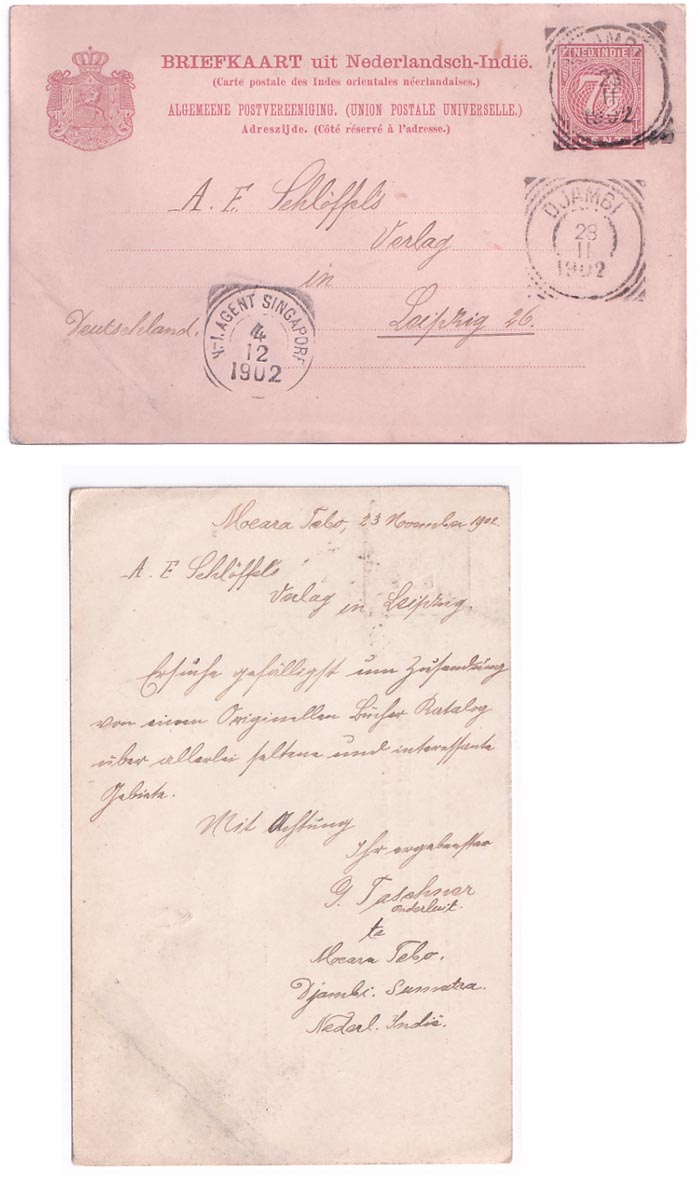 BRIEFKAART uit Nederlandsch-Indië.
(Carte postale des Indes orientales néerlandaises.)
ALGEMEENE POSTVEREENIGING. (UNION POSTALE UNIVERSELLE.)
Adreszijde. (Côté réservé à l'adresse.)
NED. INDIE
7½
CENT
23
11
1902
DJAMBI
28
11
1902
A. E. Schlöffel's
Verlag
in
Leipzig 26.
Deutschland.
N-I. AGENT SINGAPORE
4
12
1902
Moeara Tebo, 23 November 1902.
A. E Schlöffel's
Verlag in Leipzig.
Ersuche gefälligst um Zusendung
von einem Originellen Bücher Katalog
über allerlei seltene und interessante
Gebiete.
Mit Achtung
Ihr ergebenster
G. Taschner
onderluit.
te
Moeara Tebo.
Djambi. Sumatra.
Nederl. Indië.